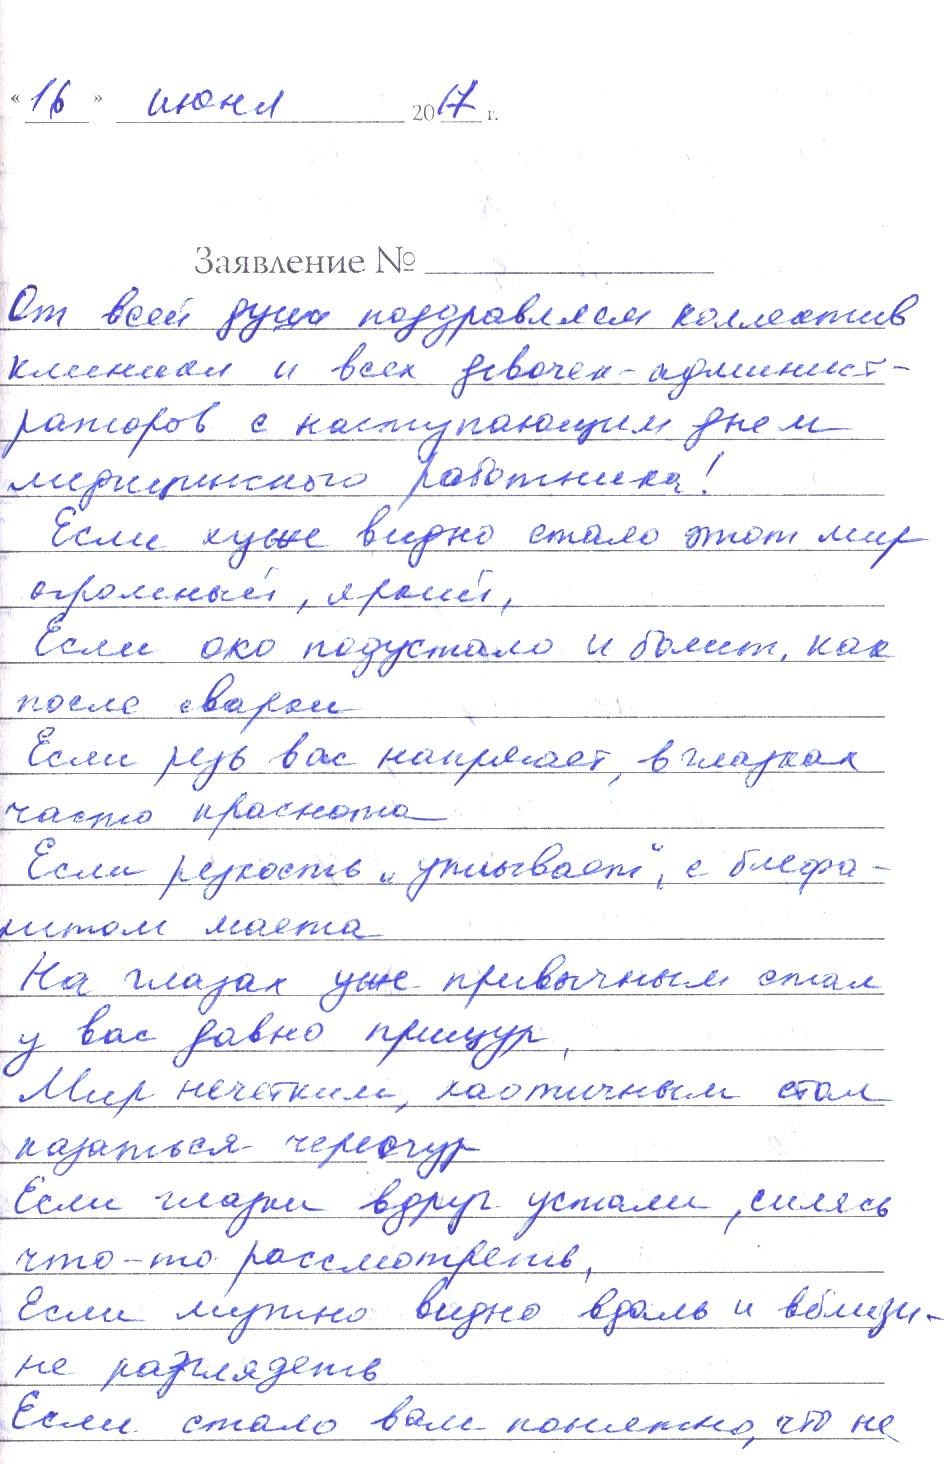 «16» июня 2017 г.
Заявление №
От всей души поздравляем коллектив
клиники и всех девочек-админист-
раторов с наступающим днем
медицинского работника!
Если хуже видно стало этот мир
огромный, яркий,
Если око подустало и болит, как
после сварки
Если резь вас напрягает, в глазках
часто краснота
Если резкость „уплывает", с блефа-
ритом маета
На глазах уже привычным стал
у вас давно прищур,
Мир нечетким, хаотичным стал
казаться чересчур
Если глазки вдруг устали, силясь
что-то рассмотреть,
Если мутно видно вдаль и вблизи-
не разглядеть
Если стало вам понятно, что не